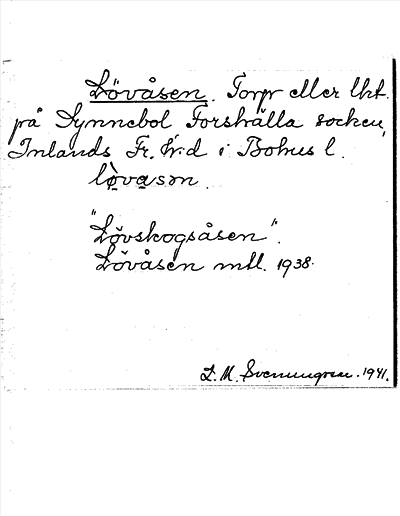 Lövåsen. Torp eller lht.
på Synnebol Forshälla socken,
Inlands Fr. h:d i Bohus l.
lo̱va̱sɷn.
"Lövskogsåsen".
Lövåsen mtl. 1938.
L. M. Svenungsson. 1941.